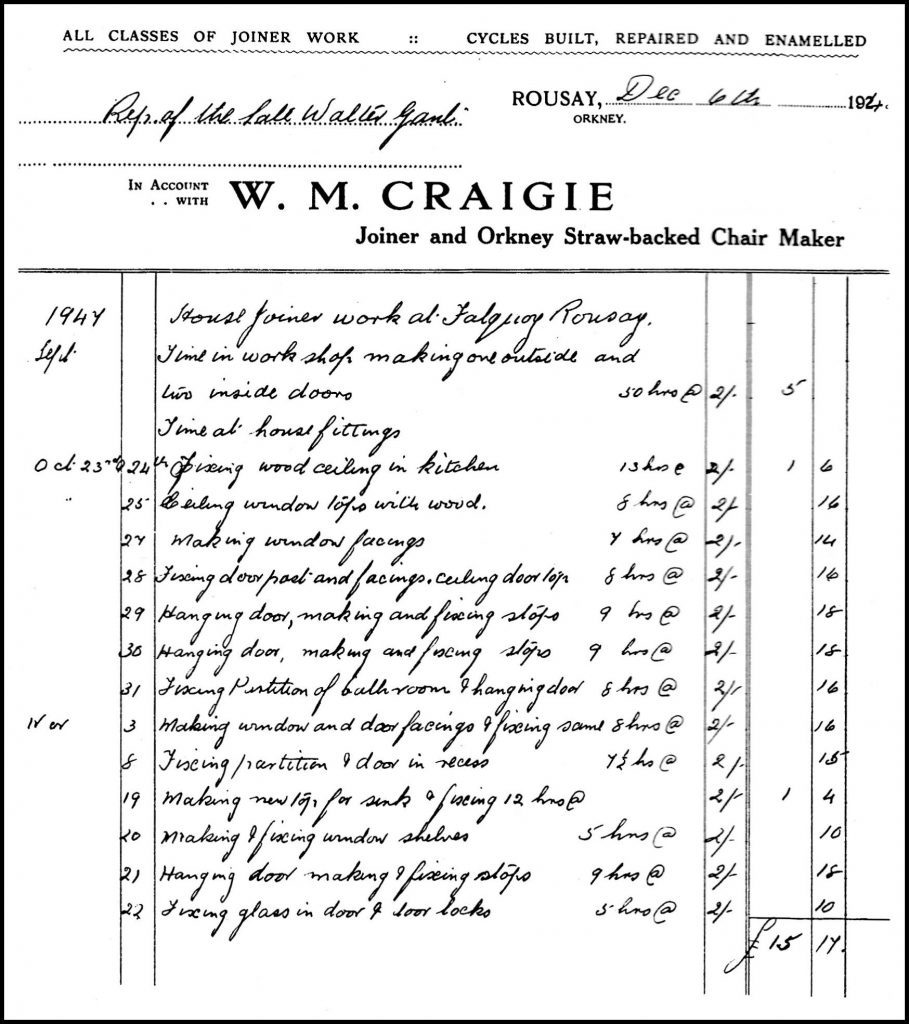 ALL CLASSES OF JOINER WORK :: CYCLES BUILT, REPAIRED AND ENAMELLED
ROUSAY, Dec 6th 194
ORKNEY.
Rep. of the late Walter
IN ACCOUNT
. . WITH
W. M. CRAIGIE
Joiner and Orkney Straw-backed Chair Maker
1947 House Joiner work at Falquoy Rousay.
Sept Time in work shop making one outside and
two inside doors 50 hrs @ 2/- 5
Time at house fittings
Oct 23rd & 24th Fixing wood ceiling in kitchen 13 hrs @ 2/- 1 6
" 25 Ceiling window tops with wood. 8 hrs @ 2/- 16
27 Making window facings 7 hrs @ 2/- 14
28 Fixing door post and facings. ceiling door top 8 hrs @ 2/- 16
29 Hanging door, making and fixing stops 9 hrs @ 2/- 18
30 Hanging door, making and fixing stops 9 hrs @ 2/- 18
31 Fixing Partition of bathroom & hanging door 8 hrs @ 2/- 16
Nov 3 Making window and door facings & fixing same 8 hrs @ 2/- 16
8 Fixing partition & door in recess 7½ hs @ 2/- 15
19 Making new top for sink & fixing 12 hrs @ 2/- 1 4
20 Making & fixing window shelves 5 hrs @ 2/- 10
21 Hanging door making & fixing stops 9 hrs @ 2/- 18
22 Fixing glass in door & door locks 5 hrs @ 2/- 10
£ 15 17